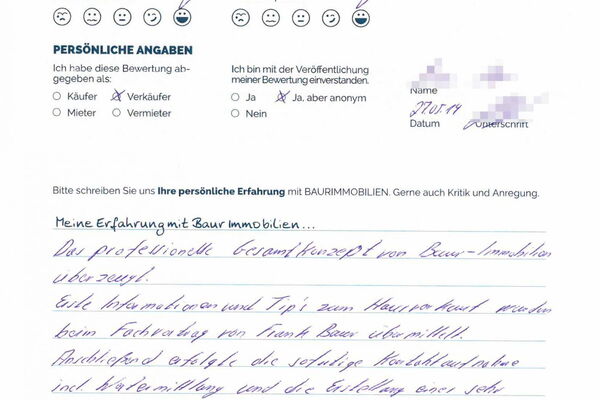 PERSÖNLICHE ANGABEN
Ich habe diese Bewertung ab-
gegeben als:
Käufer Verkäufer
Mieter Vermieter
Ich bin mit der Veröffentlichung
meiner Bewertung einverstanden.
Ja Ja, aber anonym
Nein
Name
27.05.19
Datum Unterschrift
Bitte schreiben Sie uns Ihre persönliche Erfahrung mit BAURIMMOBILIEN. Gerne auch Kritik und Anregung.
Meine Erfahrung mit Baur Immobilien...
Das professionelle Gesamtkonzept von Baur-Immobilien
überzeugt.
Erste Informationen und Tip's zum Hausverkauf wurden
beim Fachvortrag von Frank Baur übermittelt.
Anschließend erfolgte die sofortige Kontaktaufnahme
incl. Wertermittlung und die Erstellung einer sehr